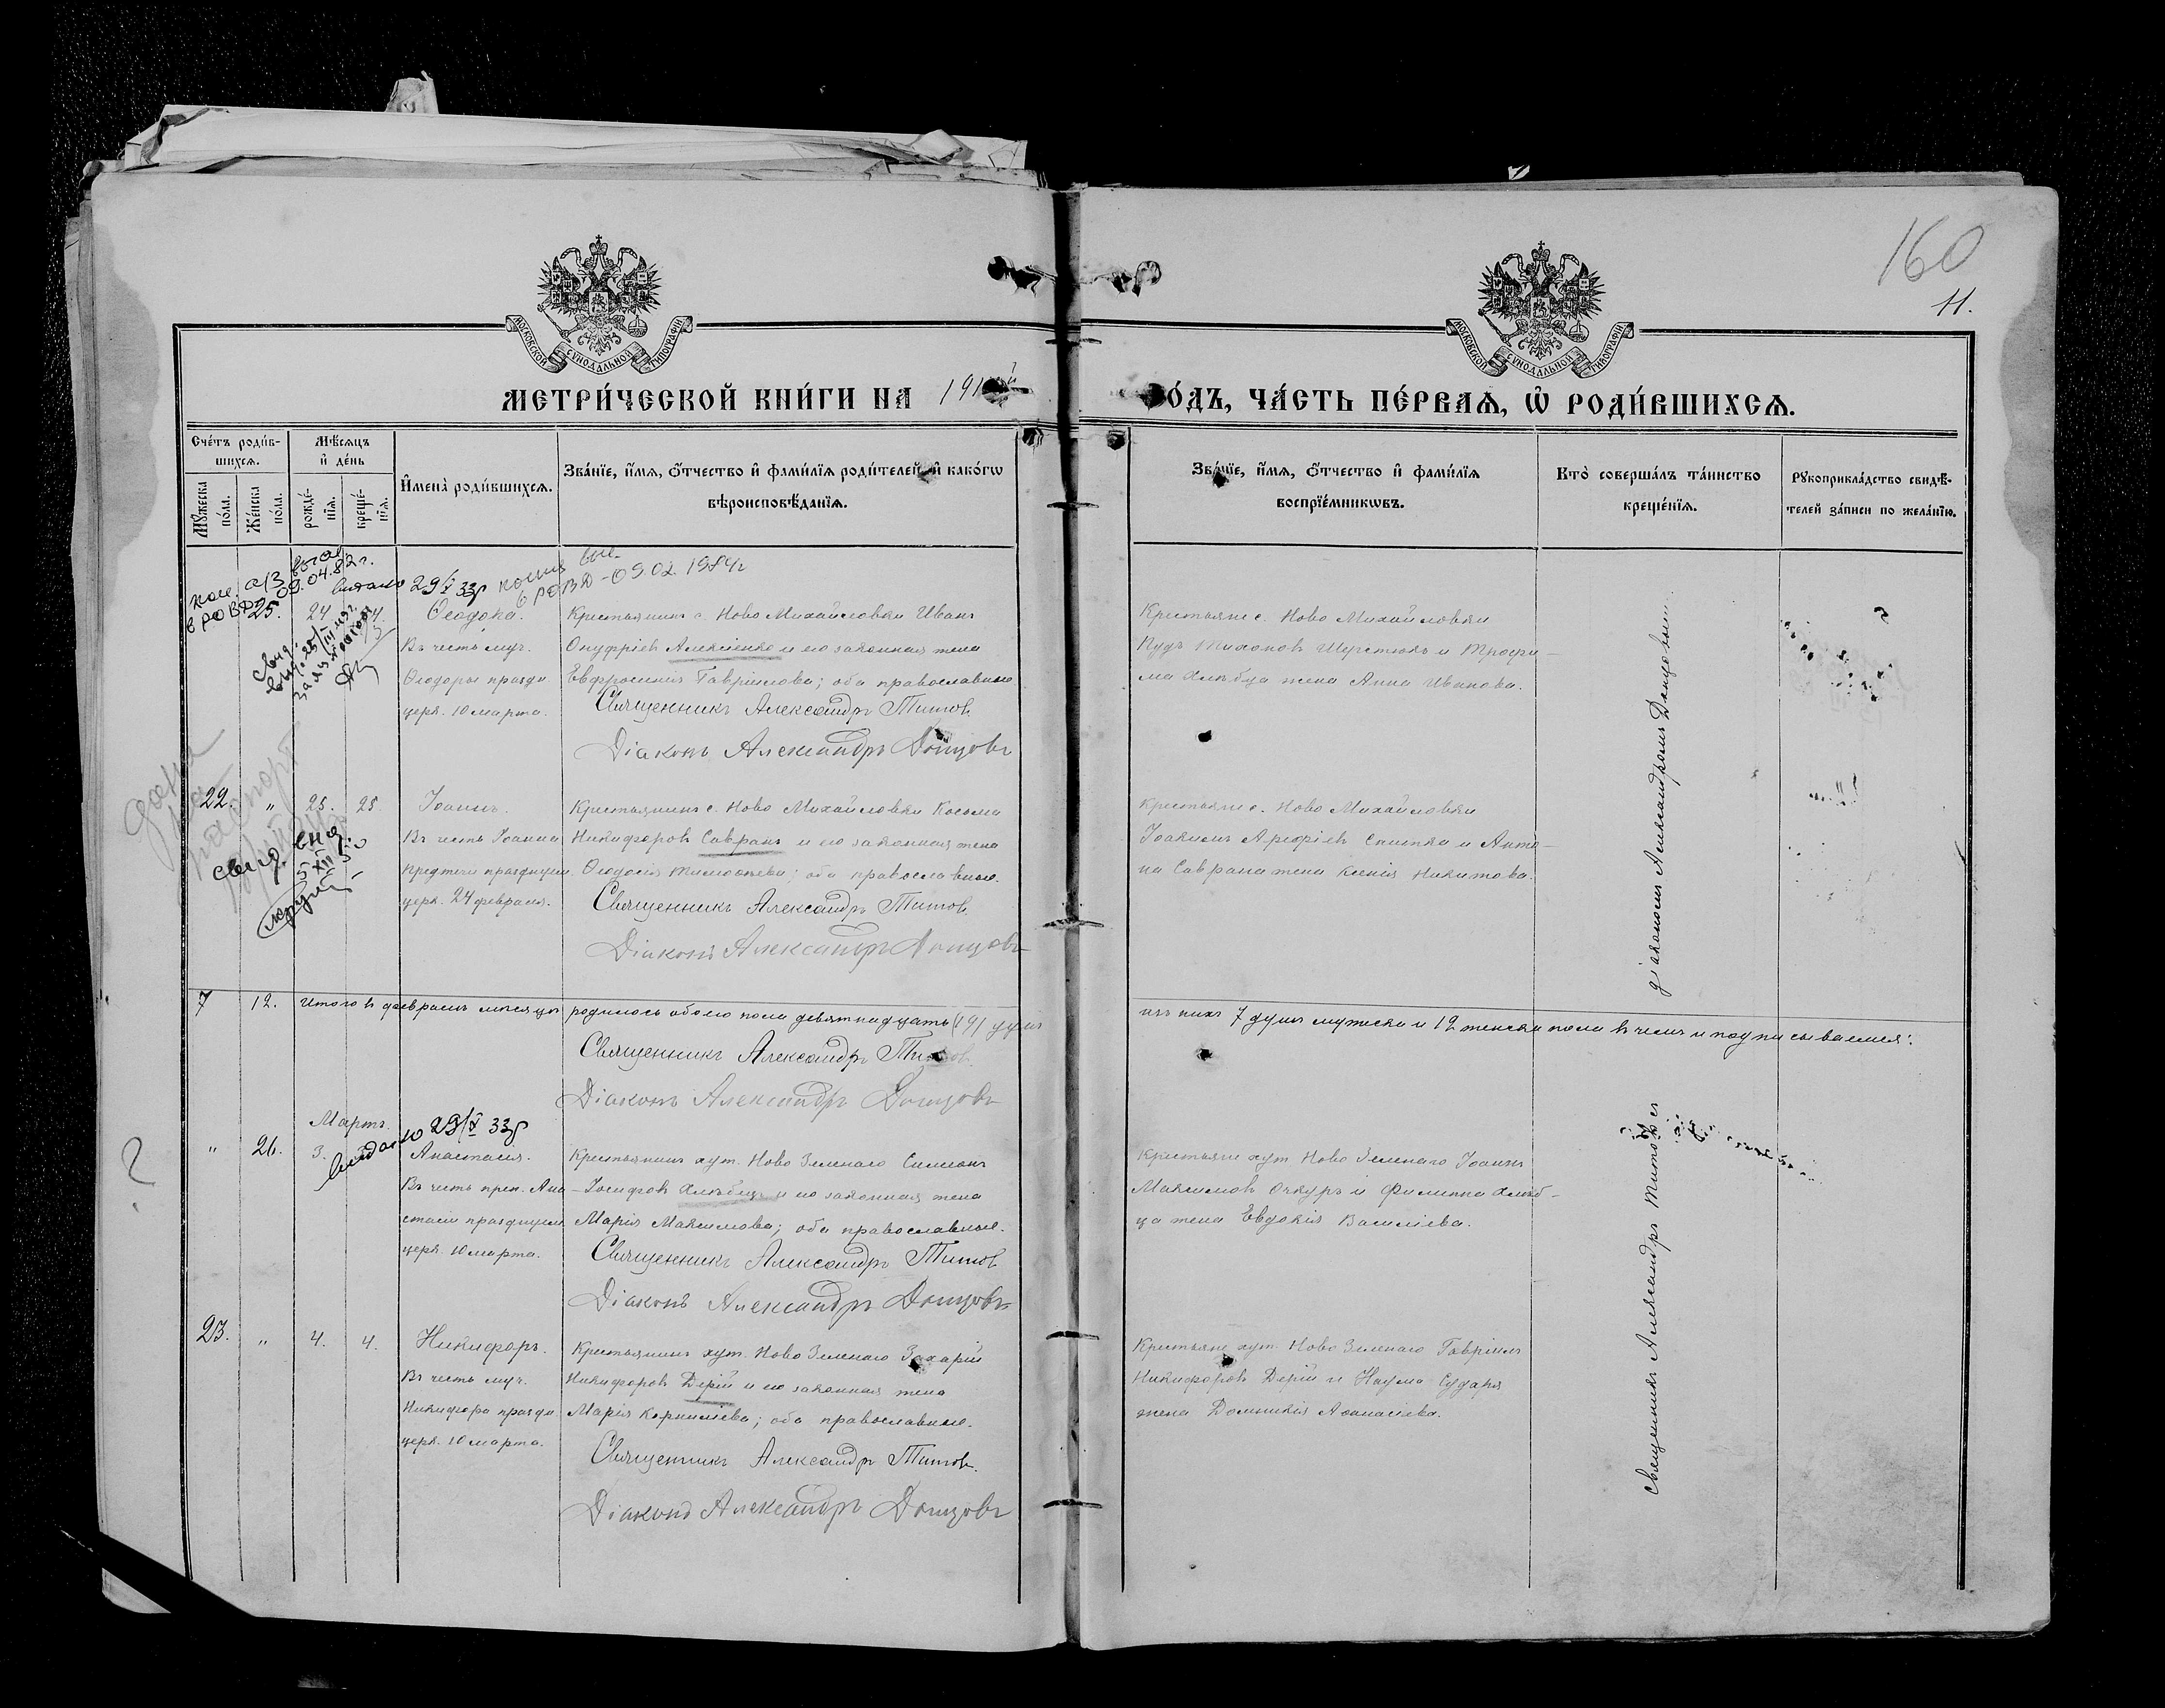 160
11.
МОСКОВСКОЙ СУНОДАЛЬНОЙ ТИПОГРАФІИ
МОСКОВСКОЙ СУНОДАЛЬНОЙ ТИПОГРАФІИ
МЕТРИ́ЧЕСКОЙ КНИ́ГИ НА 191
ОДЪ, ЧА́СТЬ ПЕ́РВАѦ, Ѡ РОДИ́ВШИХСѦ.
Сче́тъ роди́вшихсѧ.
Мꙋ́жеска по́ла.
Же́нска по́ла.
Мѣ́сѧцъ и де́нь
рожде́нїѧ.
креще́нїѧ.
Имена̀ роди́вшихсѧ.
Зва́нїе, и́мѧ, ѻ́тчество и фами́лїѧ роди́телей, и како́гѡ
вѣроисповѣ́данїѧ.
Зва́нїе, и́мѧ, ѻ́тчество и фами́лїѧ
воспрїе́мникѡвъ.
Кто̀ соверша́лъ та́инство
креще́нїѧ.
Рꙋкоприкла́дство свидѣ́-
телей за́писи по жела́нїю.
09.04.82 г.
в РОВД
выдано 29/X 33 г
копия выс.
в РОВД - 09.02.1984 г
25. 24
Ѳеодора.
Въ честь муч.
Ѳеодоры празди
церк. 10 марта.
Крестьянинъ с. Ново Михайловки Иванъ
Онуфріевъ Алексіенко и его законная жена
Евфросинія Гавріилова; оба православные
Священникъ Александръ Титовъ
Діаконъ Александръ Донцовъ
Крестьяне с. Ново Михайловки
Пудъ Тихоновъ Шерстюкъ и Трофи-
ма Хлѣбца жена Анна Иванова.
22. " 25. 25
Іоаннъ.
Въ честь Іоанна
Предтечи празднуем.
церк. 24 февраля.
Крестьянинъ с. Ново Михайловки Косьма
Никифоровъ Савранъ и его законная жена
Ѳеодосія Тимоѳеева; оба православные.
Священникъ Александръ Титовъ
Діаконъ Александръ Донцовъ
Крестьяне с. Ново Михайловки
Іоакимъ Арефіевъ и Анти-
па Саврана жена Ксенія Никитова.
діакономъ Александромъ Донцовымъ
7 12. Итого въ февралѣ мѣсяцѣ родилось обоего пола девятнадцать (19) душъ
изъ нихъ 7 душъ мужеска и 12 женска пола въ чемъ и подписываемся:
Священникъ Александръ Титовъ
Діаконъ Александръ Донцовъ
Мартъ.
выдано 29/X 33 г
" 26. 3.
Анастасія.
Въ честь преп. Ана-
стасіи празднуем.
церк. 10 марта.
Крестьянинъ хут. Ново Зеленаго Симеонъ
Іосифовъ Хлѣбецъ и его законная жена
Марія Максимова; оба православные.
Священникъ Александръ Титовъ
Діаконъ Александръ Донцовъ
Крестьяне хут. Ново Зеленаго Іоаннъ
Максимовъ Очкуръ и Филиппа Хлѣб-
ца жена Евдокія Василіева.
23. " 4. 4.
Никифоръ.
Въ честь муч.
Никифора празди
церк. 10 марта.
Крестьянинъ хут. Ново Зеленаго Захарій
Никифоровъ Дерій и его законная жена
Марія Корниліева; оба православные.
Священникъ Александръ Титовъ.
Діаконъ Александръ Донцовъ
Крестьяне хут. Ново Зеленаго Гавріилъ
Никифоровъ Дерій и Наума Сударя
жена Домникія Аѳанасіева.
Священникъ Александръ Титовъ съ